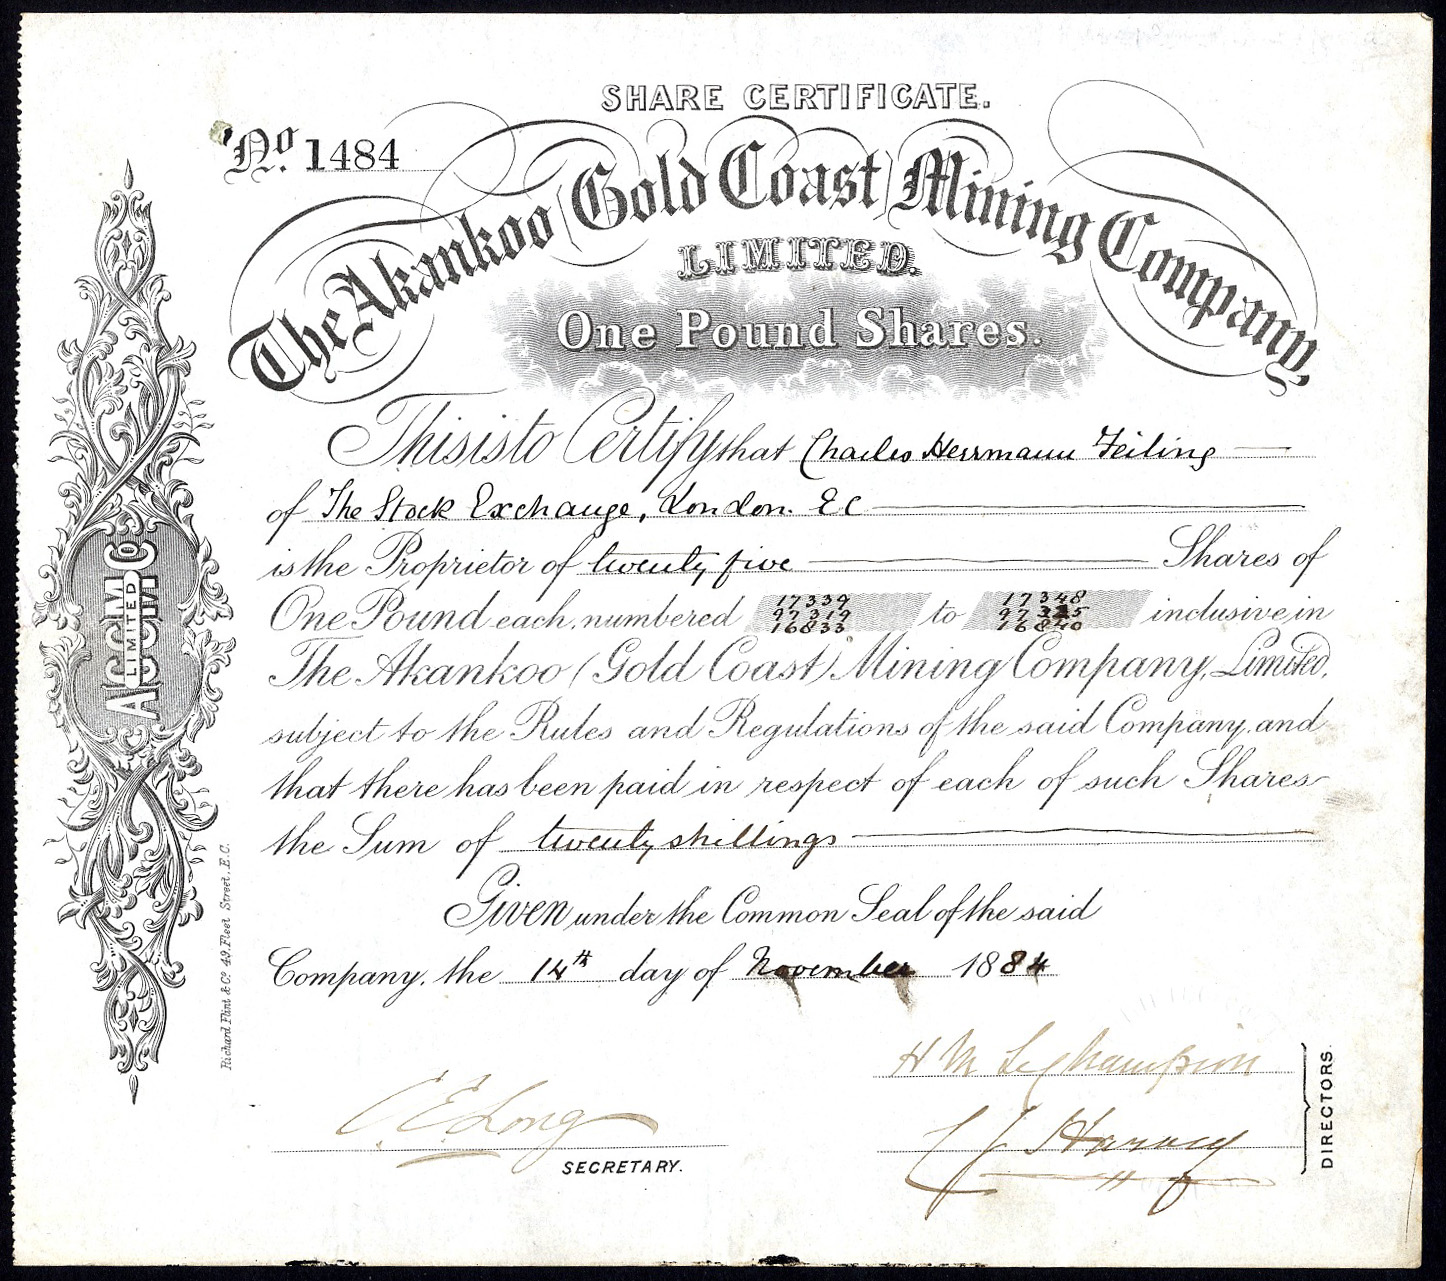 SHARE CERTIFICATE.
No. 1484
The Akankoo (Gold Coast) Mining Company
LIMITED.
One Pound Shares.
This is to Certify that Charles Herrmann Feiling
of The Stock Exchange, London. E C
is the Proprietor of twenty five Shares of
One Pound each, numbered 17339 to 17348 inclusive, in
97319 97325
16833 16840
The Akankoo (Gold Coast) Mining Company, Limited,
subject to the Rules and Regulations of the said Company, and
that there has been paid in respect of each of such Shares
the Sum of twenty shillings
Given under the Common Seal of the said
Company, the 14th day of November 1884
C. E. Long
SECRETARY.
H M Le Champion
C J Harvey
DIRECTORS.
ACGMCo
LIMITED
Richard Flint & Co. 49, Fleet Street, E.C.